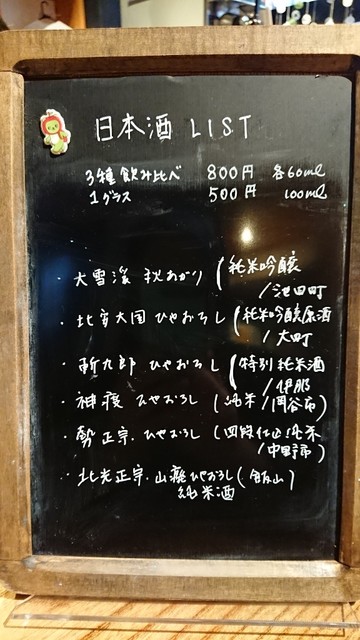 日本酒 LIST
3種飲み比べ 800円 各60ml
1グラス 500円 100ml
・大雪渓 秋あがり (純米吟醸
/池田町
・北安大国 ひやおろし (純米吟醸原酒
/大町
・斬九郎 ひやおろし (特別純米酒
/伊那
・神渡 ひやおろし (純米/岡谷市)
・勢正宗 ひやおろし (四段仕込純米
/中野市)
・北光正宗 山廃ひやおろし (飯山)
純米酒